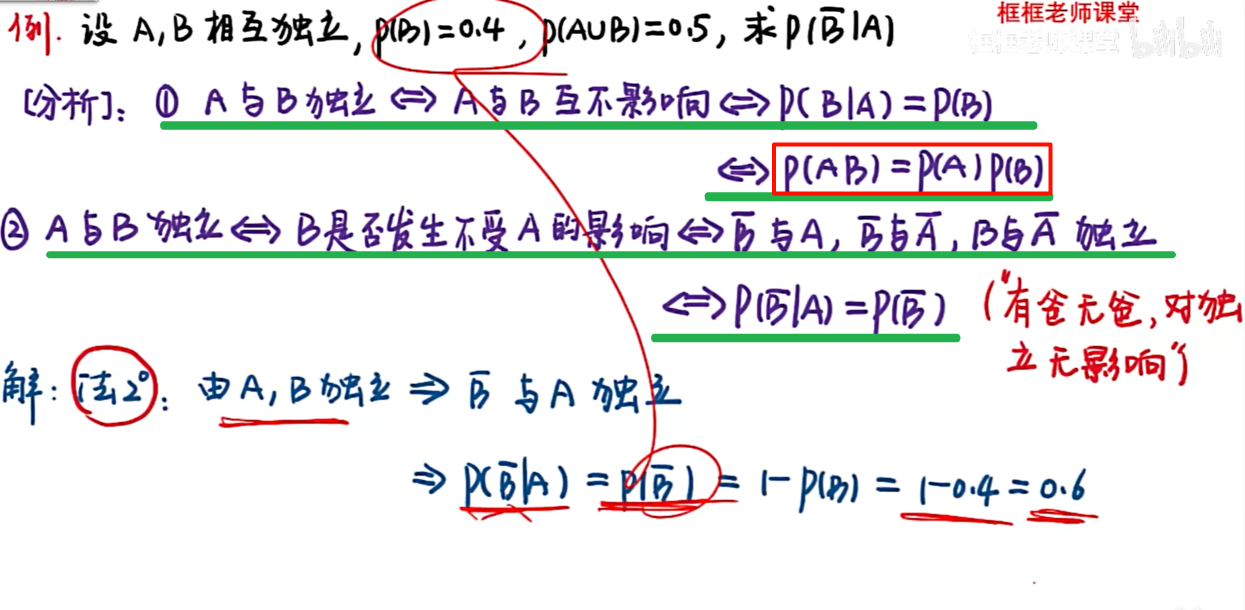 框框老师课堂
框框老师课堂 bilibili
例. 设 A,B 相互独立, P(B)=0.4, P(A∪B)=0.5, 求 P(B̅|A)
[分析]: ① A与B独立 ⇔ A与B互不影响 ⇔ P(B|A)=P(B)
⇔ P(AB)=P(A)P(B)
② A与B独立 ⇔ B是否发生不受A的影响 ⇔ B̅与A, B̅与A̅, B与A̅ 独立
⇔ P(B̅|A)=P(B̅) ("有爸无爸,对独
立无影响")
解: 法2°: 由A,B独立 ⇒ B̅与A独立
⇒ P(B̅|A) = P(B̅) = 1-P(B) = 1-0.4 = 0.6